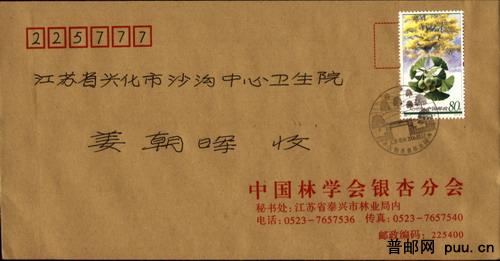 225777
江苏省兴化市沙沟中心卫生院
姜朝晖 收
80
中国林学会银杏分会
秘书处：江苏省泰兴市林业局内
电话：0523-7657536 传真：0523-7657540
邮政编码：225400
普邮网 puu.cn